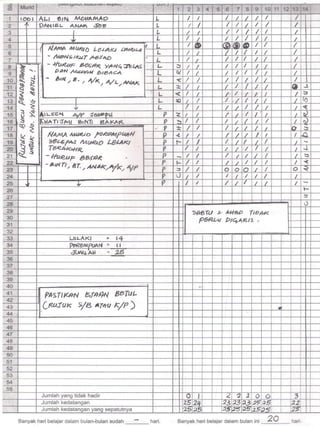 Murid
1 2 3 4 5 6 7 8 9 10 11 12 13 14
1 1001 ALI BIN MOHAMAD L
2 DANIEL ANAK JOE L
NAMA MURID LELAKI DAHULU
- MENGIKUT ABJAD
- HURUF BESAR YANG JELAS DAN MUDAH DIBACA
- BIN, B., A/K, A/L, ANAK
RUJUK BUKU PENDAFTARAN UNTUK NO. YANG BETUL!
AILEEN A/P JOSEPH P
KHATIJAH BINTI BAKAR P
NAMA MURID PEREMPUAN SELEPAS MURID LELAKI TERAKHIR.
- HURUF BESAR
- BINTI, BT., ANAK, A/K, A/P
CUTI
SABTU & AHAD TIDAK PERLU DIGARIS.
LELAKI = 14
PEREMPUAN = 11
JUMLAH = 25
PASTIKAN EJAAN BETUL (RUJUK S/B ATAU K/P)
Jumlah yang tidak hadir 0 1 2 2 2 0 0 3
Jumlah kedatangan 25 24 23 23 23 25 25 22
Jumlah kedatangan yang sepatutnya 25 25 25 25 25 25 25 25
Banyak hari belajar dalam bulan-bulan sudah - hari. Banyak hari belajar dalam bulan ini 20 hari.